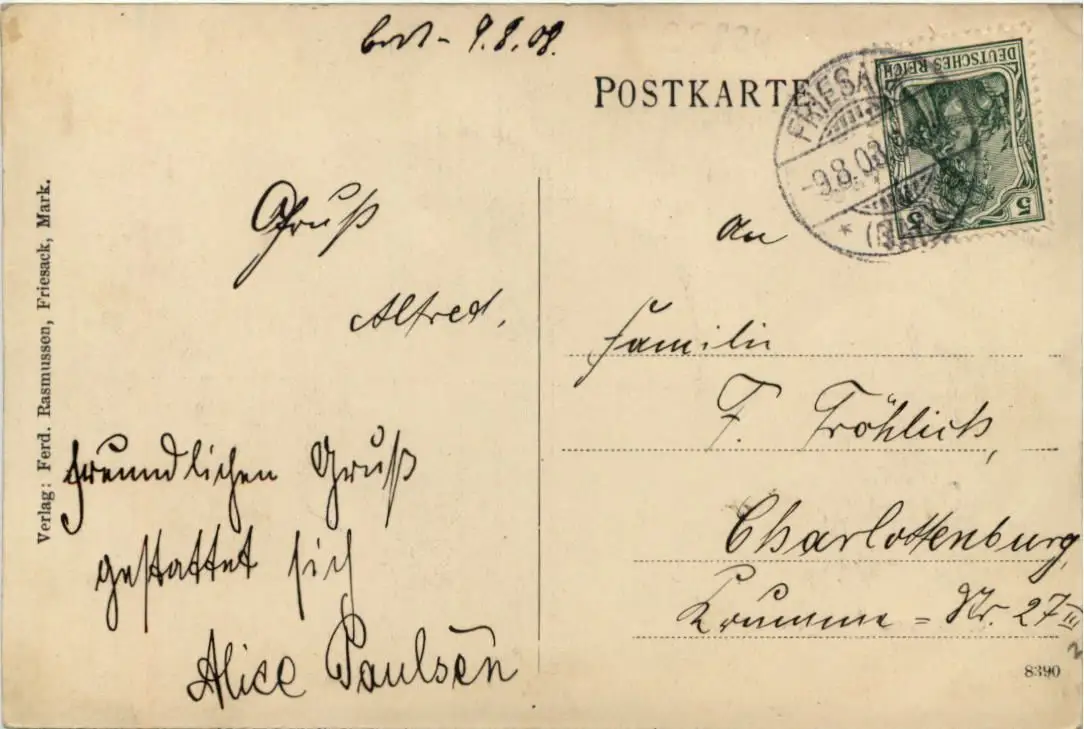 9.8.08.
POSTKARTE
DEUTSCHES REICH
5 5
FRIESACK
-9.8.08.
* (BZ.
Gruß
Alfred.
freundlichen Gruß
gestattet sich
Alice Paulsen
An
Familie
F. Fröhlich,
Charlottenburg,
Krumme = Str. 27 III
8390
Verlag: Ferd. Rasmussen, Friesack, Mark.